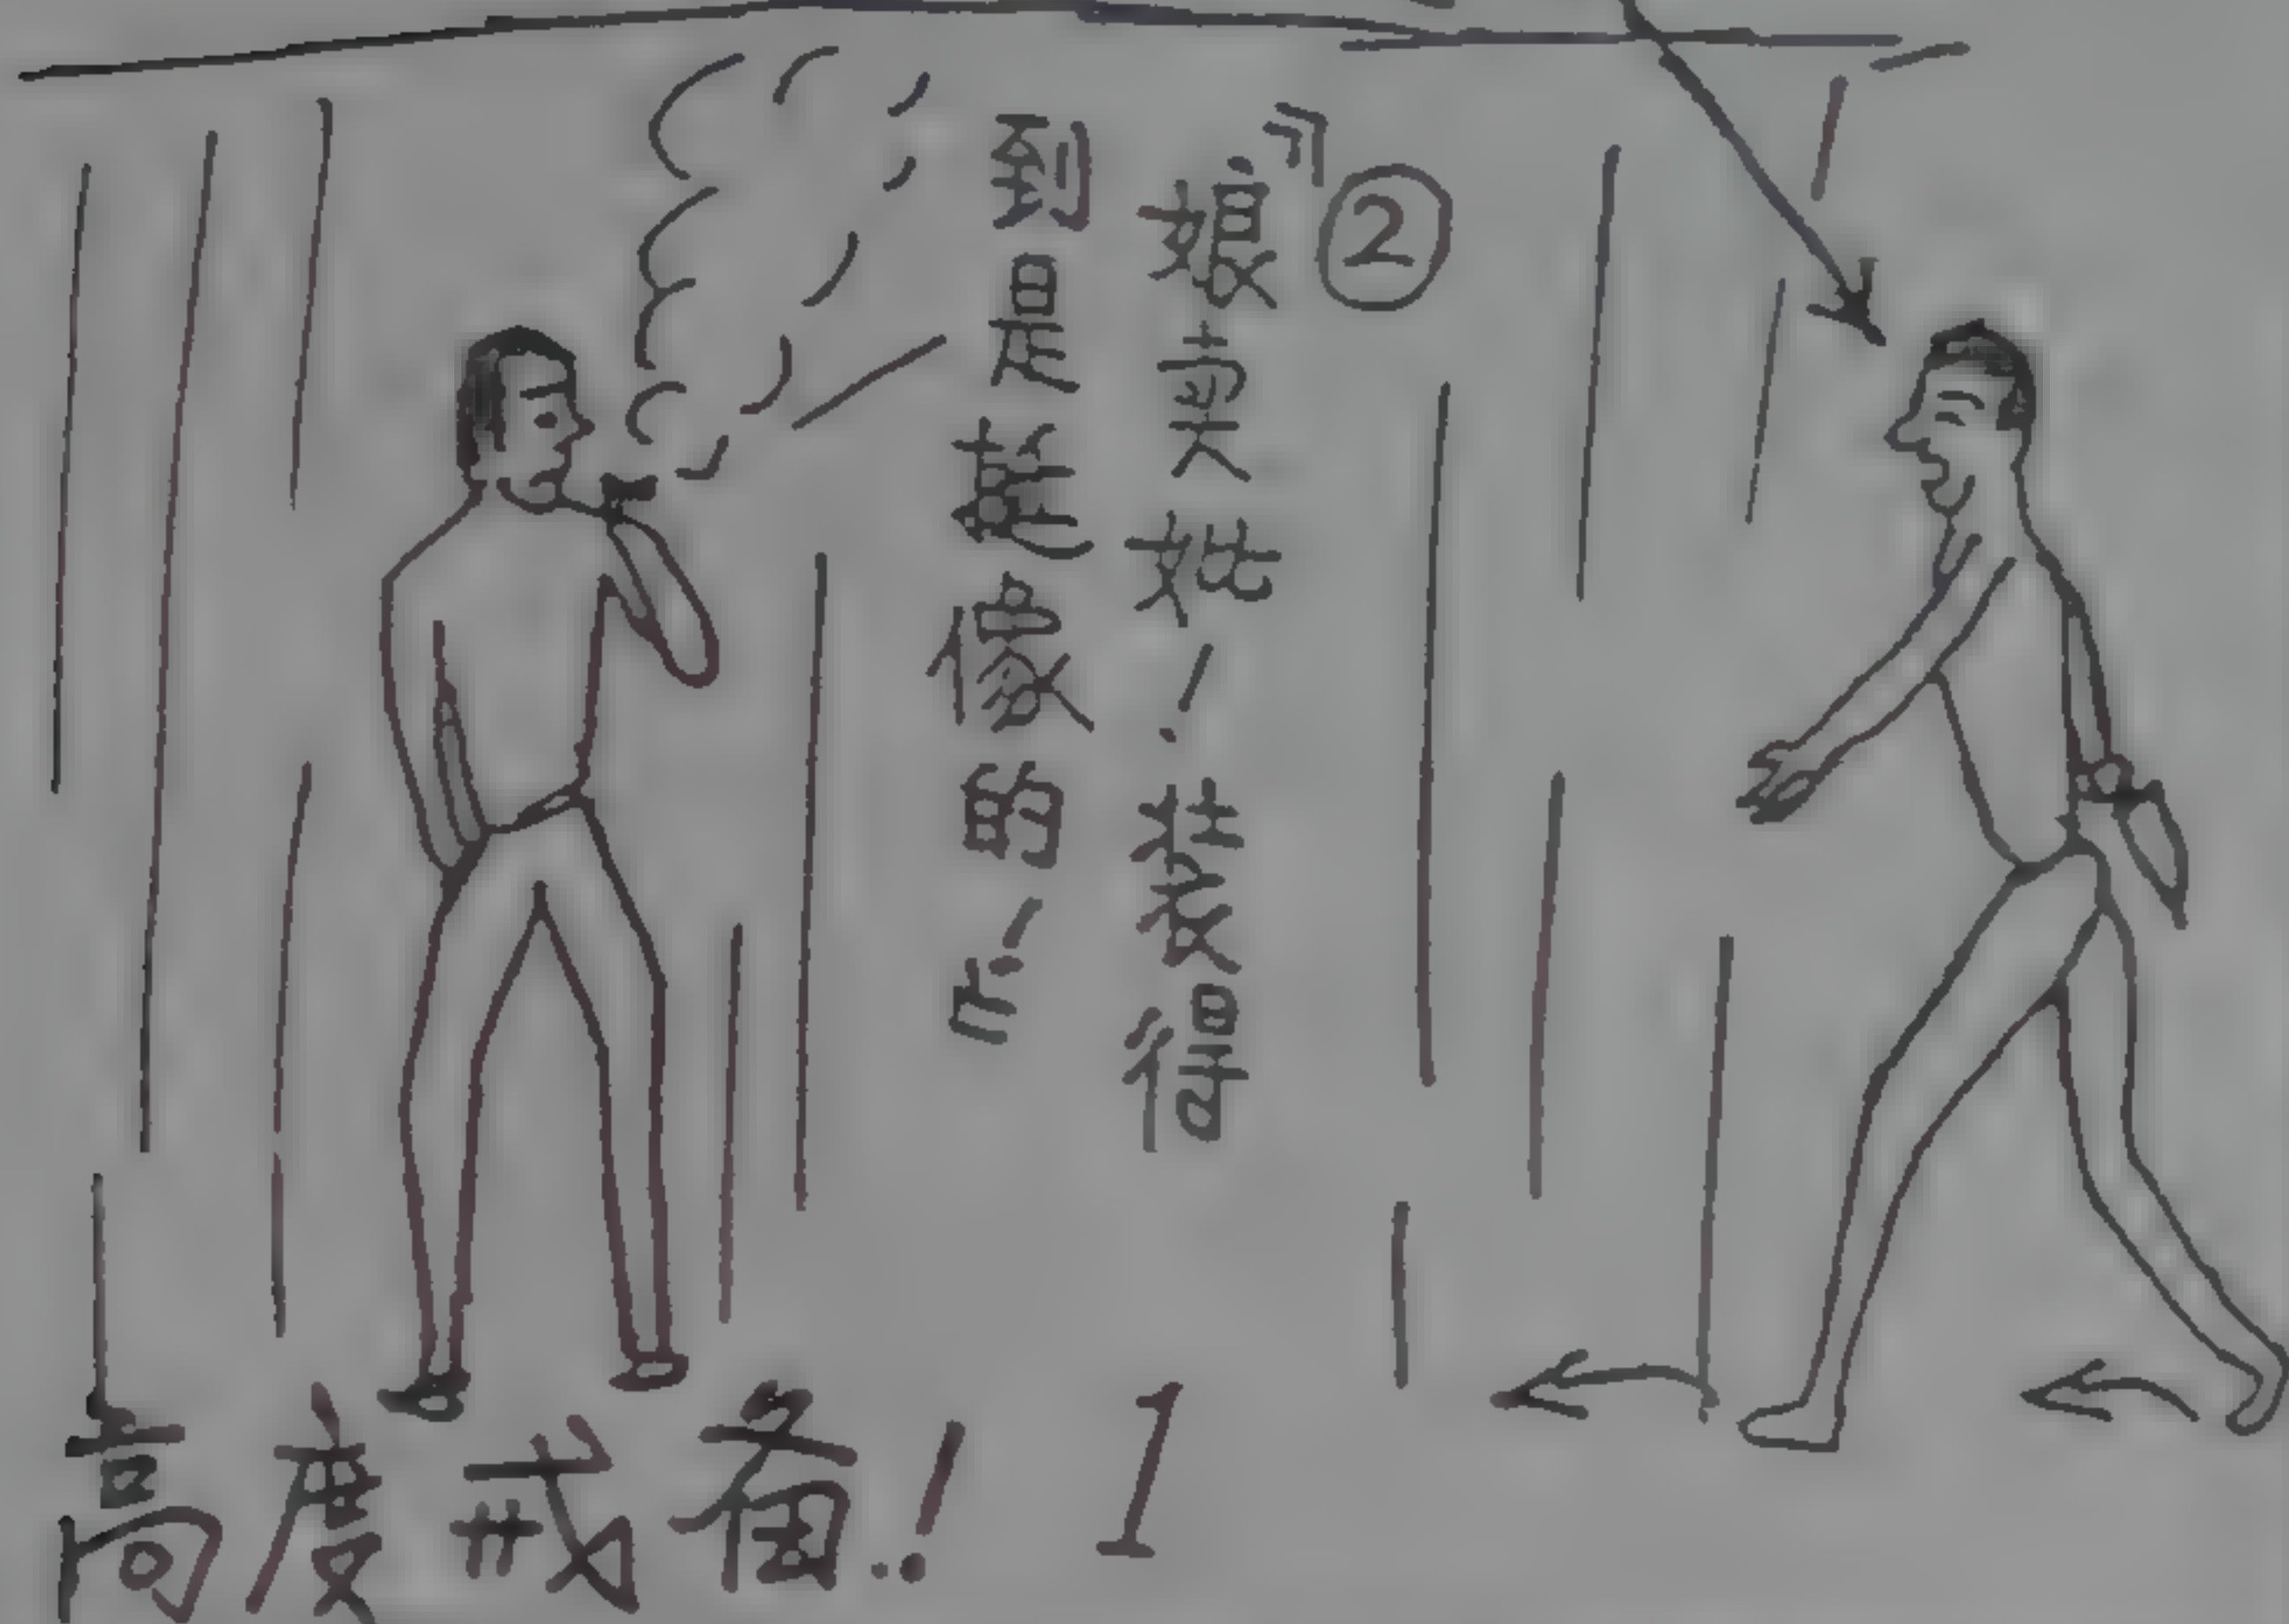 ②
『娘卖她！装得
到是挺像的！』
高度戒备！1